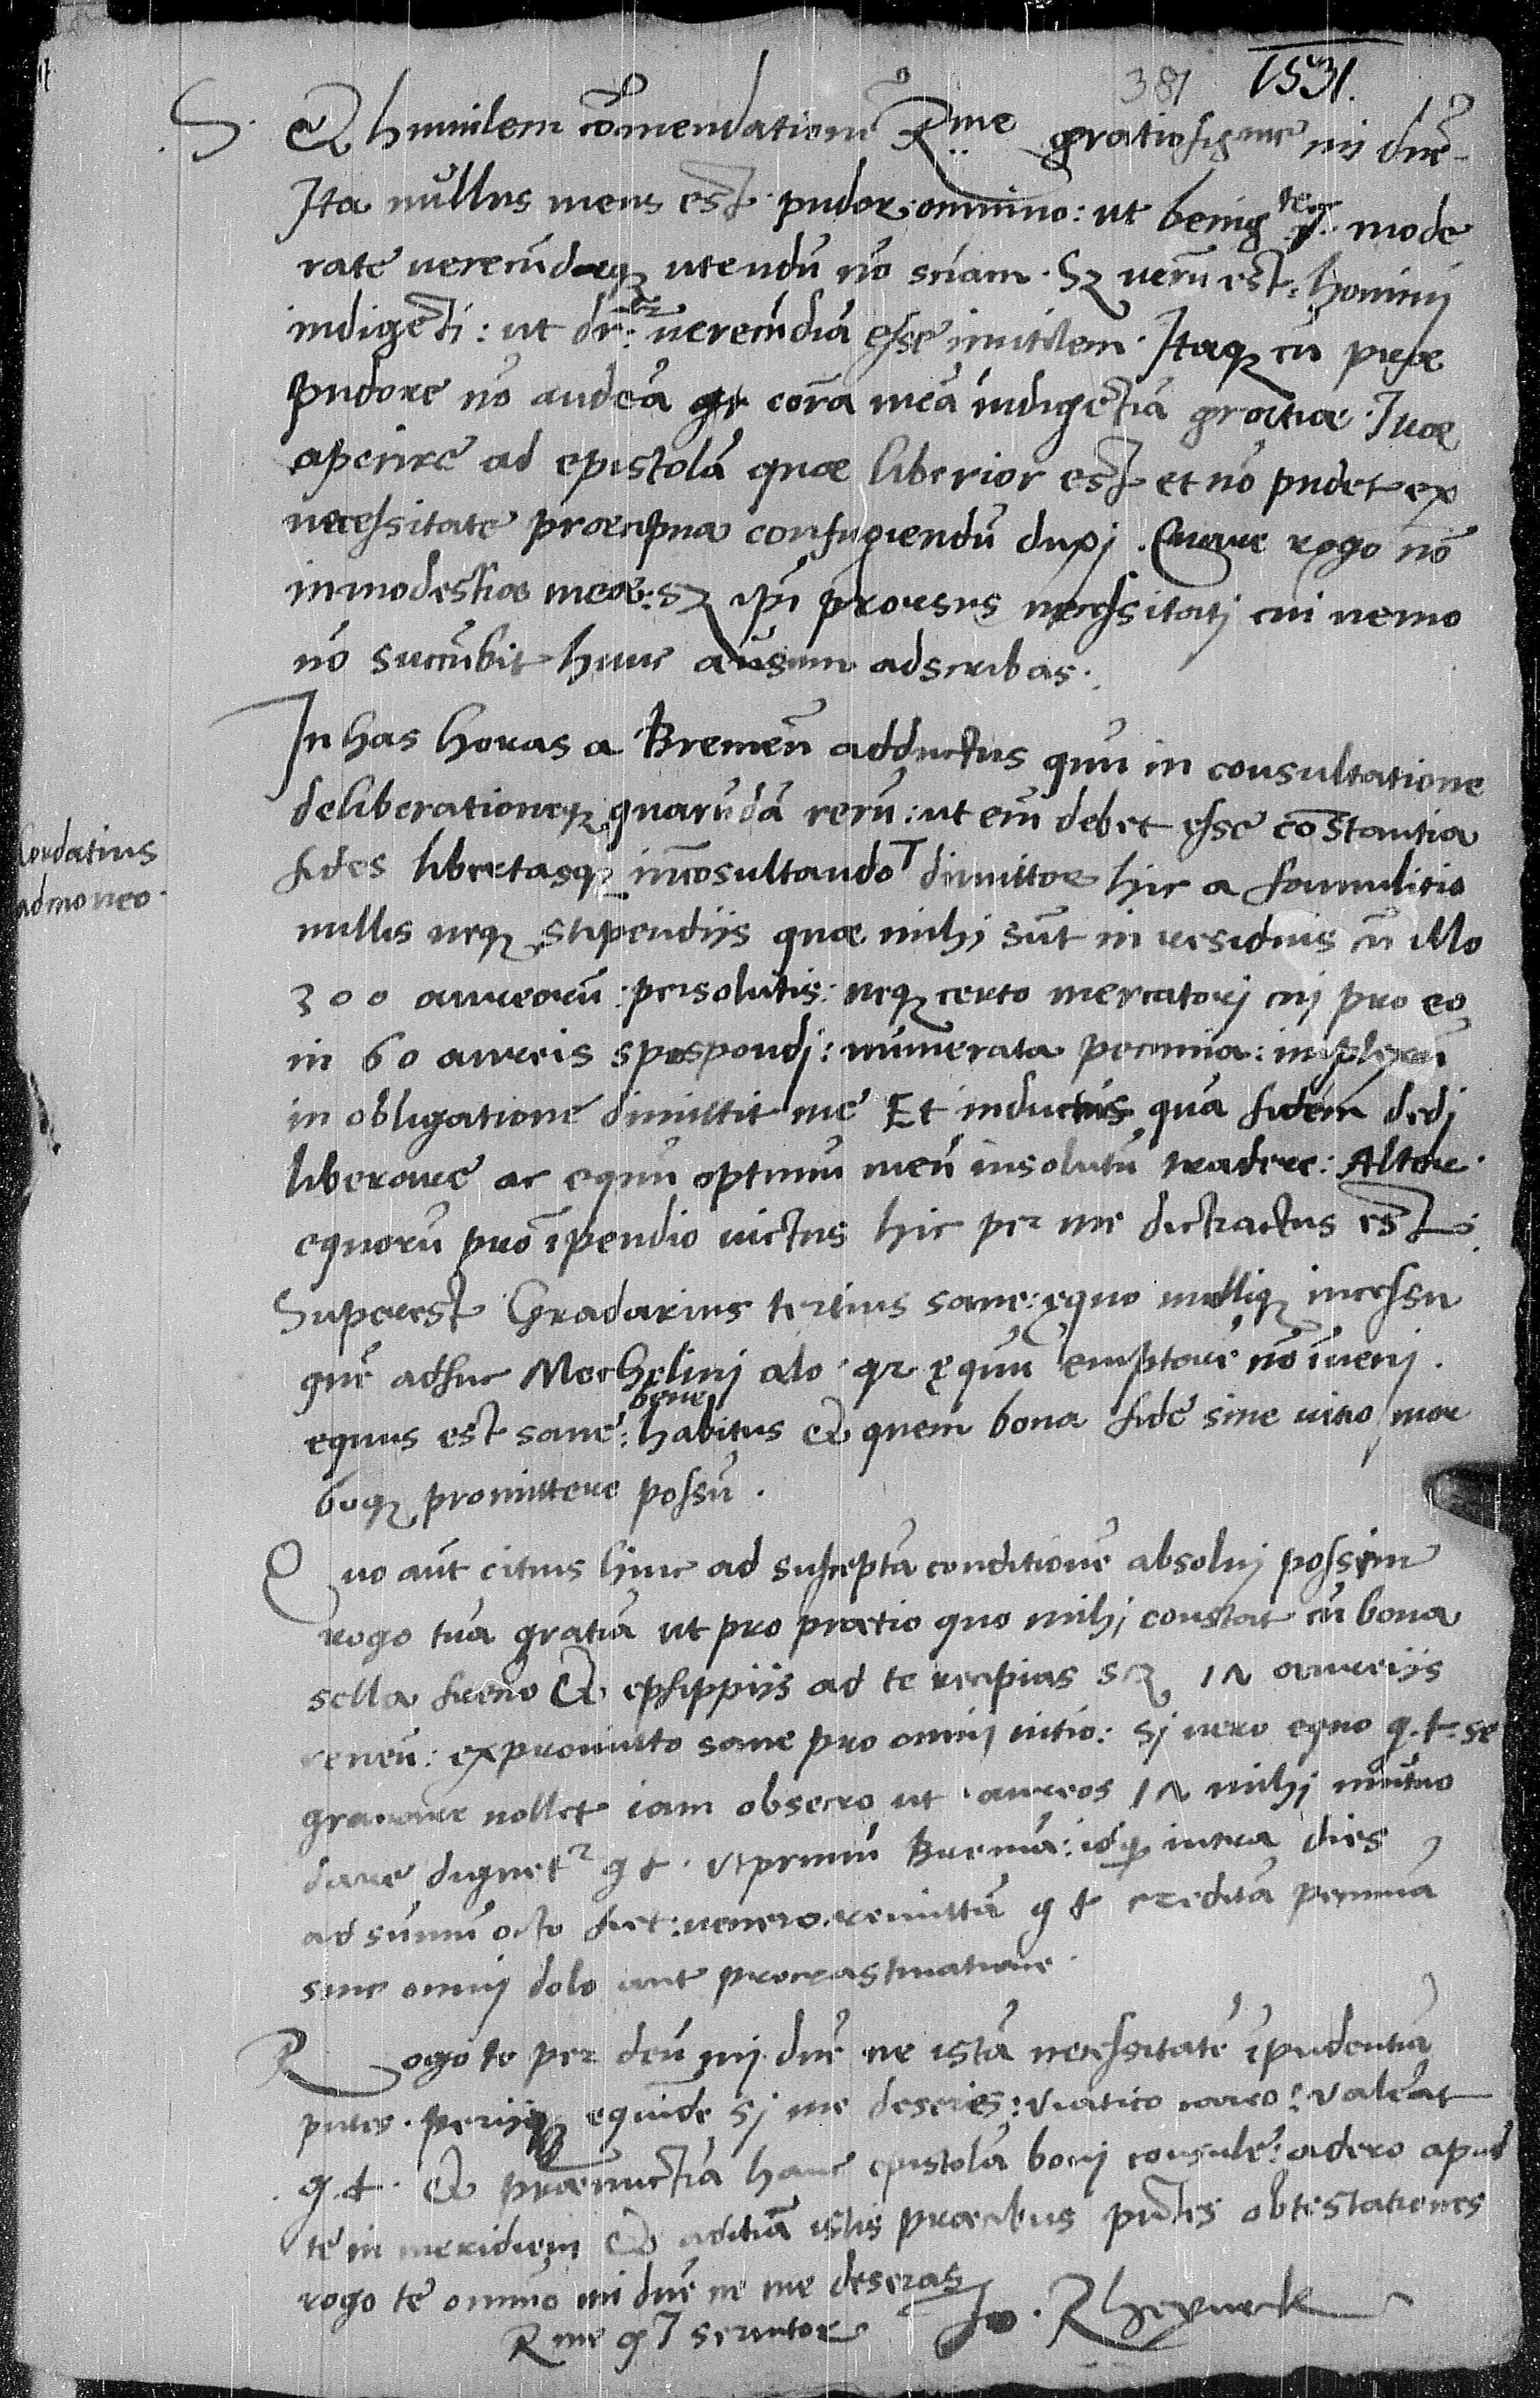 381 1531.
S. Et humilem comendationem Rme gratiosissime mi dne
Ita nullus meus est pudor omnino: ut benig te mode
rate uerecundeque utendu no sciam. Sz uerum est: homini
indigenti: ut dr: uerecundia esse inutilem. Itaque cu prae
pudore no audea cora mea indigentia gratiae Tuae
aperire ad epistola quae liberior est et no pudet ex
necessitate praecipua confugiendu duxi. Quare rogo no
inmodestiae meae: sz ipsi prorsus necessitati cui nemo
no succubit hunc ausum adscribas.
In has horas a Bremen adductus quu in consultatione
deliberationeque quarunda reru: ut enim debet esse constantia
fides libertasque in consultando dimittor hic a famulitio
Cordatius
admoneo.
nullis neque stipendiis quae mihi sunt in residuis cu illo
300 aureoru: persolutis: neque certo mercatori cui pro eo
in 60 aureis spospondi: numerata pecunia: implexum
in obligatione dimittit me Et inductus qua fidem dedi
liberare ac equu optimu meu insolutu tradere: Alter
equoru pro ipendio uictus hic per me distractus est.
Superest Gradarius tertius sane: equo mollique incessu
que adhuc Mechelinj alo qr equu emptore no iueni.
equus est sane: bene habitus et quem bona fide sine uitio mor
boque promittere possu.
Quo aut citius hinc ad suscepta conditione absolui possem
rogo tua gratia ut pro praetio quo mihi constat cu bona
sella freno et ephippiis ad te recipias sz 12 aureiis
renen: expromitto sane pro omni uitio: si uero equo g. t. se
grauare nollet iam obsecro ut aureos 12 mihi mutuo
dare dignet g t. utprimu Brema: idque intra dies
ad summu octo fiet: uenero. remitta g t credita pecunia
sine omni dolo aut procrastinatione.
Rogo te per deu mi dne ne ista necessitate ipudentia
putes. periique equide si me deseris: uiatico careo: Valeat
g. t. et hanc epistola boni consule: adero apud
te in meridiem et istis praecibus obtestationes
rogo te omnino mi dne ne me deseras
Rme g T seruitor Jo. Rheyneck